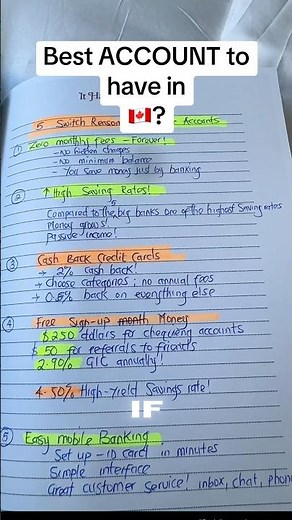 Best ACCOUNT to
have in
🇨🇦?
5 Switch Reason Accounts
① Zero monthly fees - Forever!
- No hidden charges
- No minimum balance
- You save money just by banking
② ↑ High Saving Rates!
Compared to the big 5 banks one of the highest Saving rates
Money grows!
Passive Income!
③ Cash Back Credit Cards
→ 2% cash back!
→ Choose categories; no annual fees
→ 0.5% back on everything else
④ Free Sign-up month Money
$250 dollars for chequeing accounts
$50 for referrals to friends
2.90% GIC annually!
4.50% High-Yield Savings rate!
IF
⑤ Easy mobile Banking
Set up - ID card in minutes
Simple interface
Great customer service! inbox, chat, phone